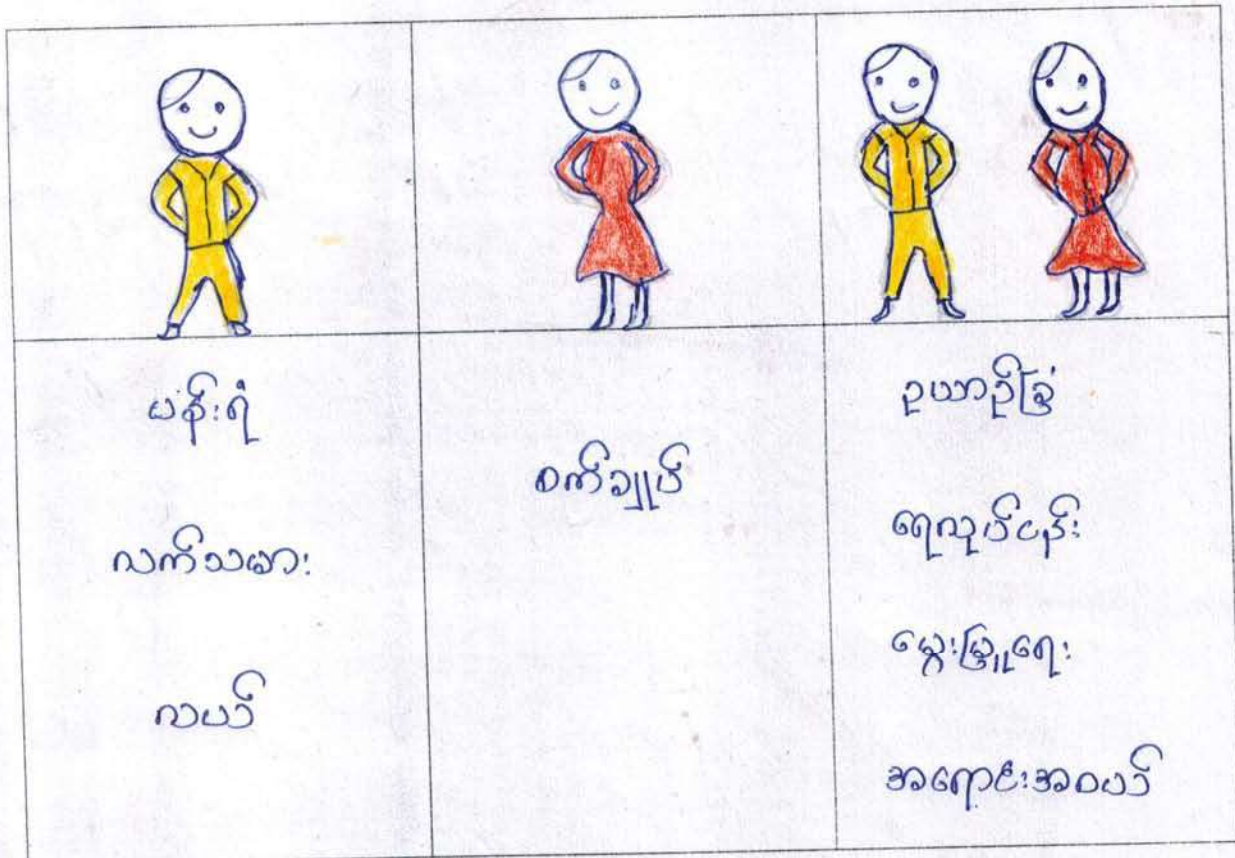 ပန်းရံ
လက်သမား
လယ်
စက်ချုပ်
ဥယာဉ်ခြံ
ရေလုပ်ငန်း
မွေးမြူရေး
အရောင်းအဝယ်